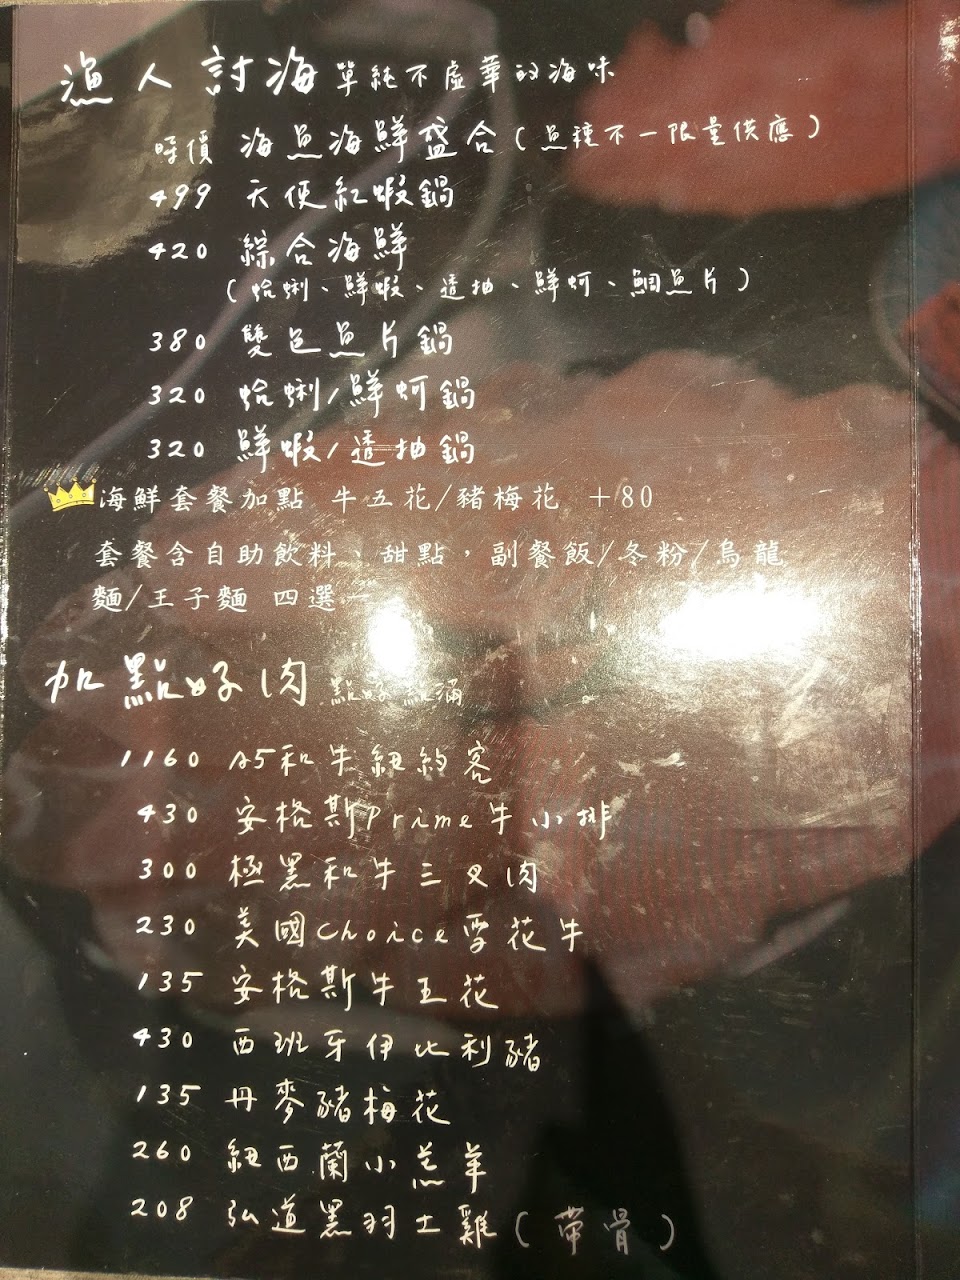 漁人討海 單純不虛華的海味
時價 海魚海鮮盛合(魚種不一限量供應)
499 天使紅蝦鍋
420 綜合海鮮
(蛤蜊、鮮蝦、透抽、鮮蚵、鯛魚片)
380 雙色魚片鍋
320 蛤蜊/鮮蚵鍋
320 鮮蝦/透抽鍋
海鮮套餐加點 牛五花/豬梅花 +80
套餐含自助飲料、甜點,副餐飯/冬粉/烏龍
麵/王子麵 四選一
加點好肉 點好點滿
1160 A5和牛紐約客
430 安格斯Prime牛小排
300 極黑和牛三叉肉
230 美國Choice雪花牛
135 安格斯牛五花
430 西班牙伊比利豬
135 丹麥豬梅花
260 紐西蘭小羔羊
208 弘道黑羽土雞(帶骨)